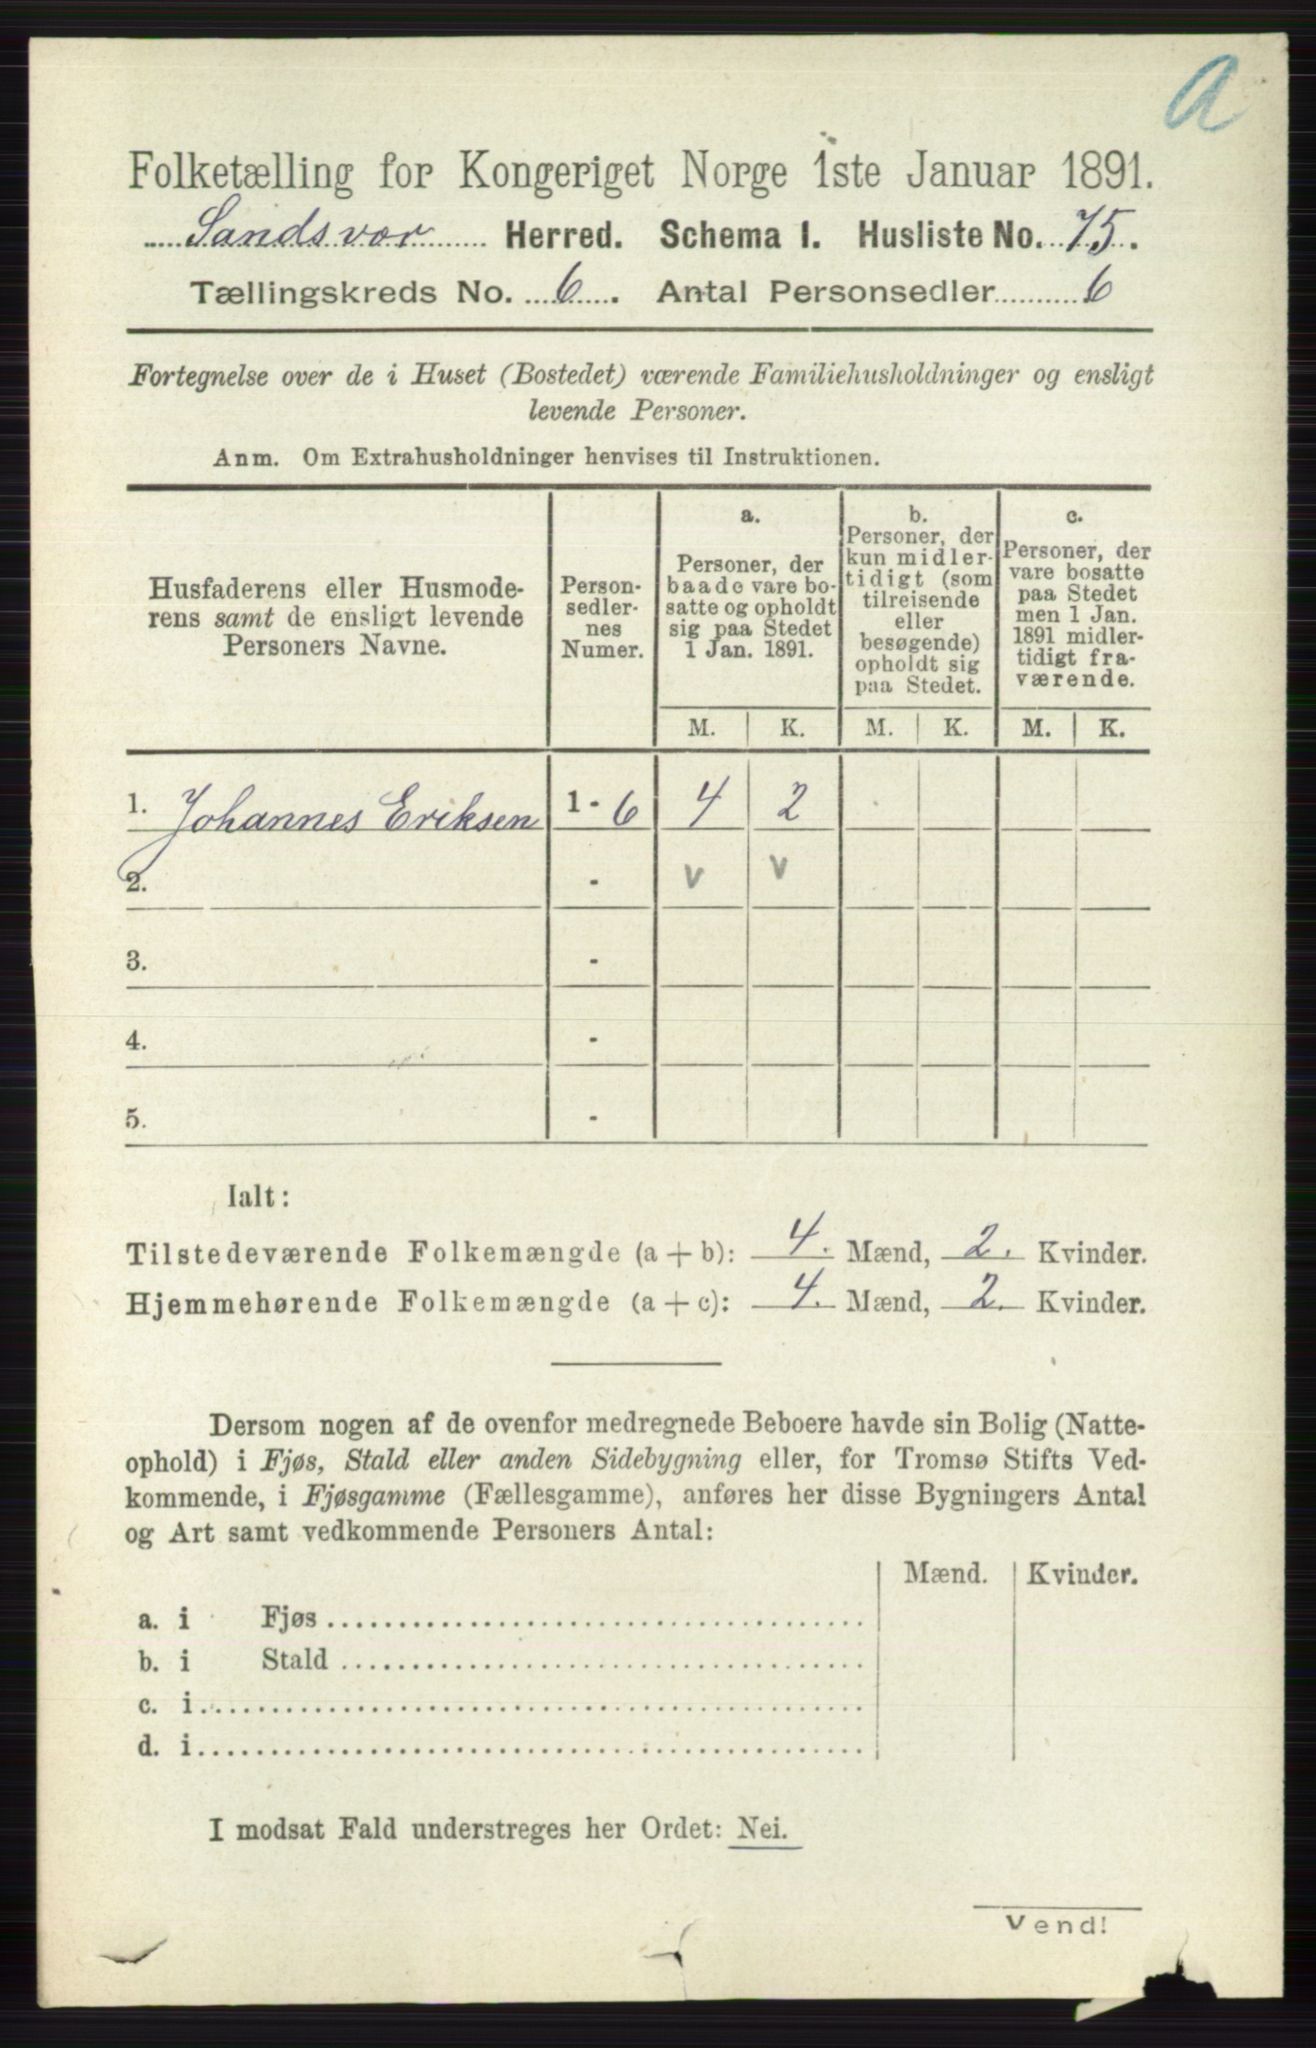 a
Folketælling for Kongeriget Norge 1ste Januar 1891.
Sandsvær Herred. Schema I. Husliste No. 75.
Tællingskreds No. 6. Antal Personsedler 6
Fortegnelse over de i Huset (Bostedet) værende Familiehusholdninger og ensligt
levende Personer.
Anm. Om Extrahusholdninger henvises til Instruktionen.
Husfaderens eller Husmode-
rens samt de ensligt levende
Personers Navne.
Person-
sedler-
nes
Numer.
a.
Personer, der
baade vare bo-
satte og opholdt
sig paa Stedet
1 Jan. 1891.
b.
Personer, der
kun midler-
tidigt (som
tilreisende
eller
besøgende)
opholdt sig
paa Stedet.
c.
Personer, der
vare bosatte
paa Stedet
men 1 Jan.
1891 midler-
tidigt fra-
værende.
M. K. M. K. M. K.
1. Johannes Eriksen 1 - 6 4 2
2. - v v
3. -
4. -
5. -
Ialt:
Tilstedeværende Folkemængde (a + b): 4. Mænd, 2. Kvinder.
Hjemmehørende Folkemængde (a + c): 4. Mænd, 2. Kvinder.
Dersom nogen af de ovenfor medregnede Beboere havde sin Bolig (Natte-
ophold) i Fjøs, Stald eller anden Sidebygning eller, for Tromsø Stifts Ved-
kommende, i Fjøsgamme (Fællesgamme), anføres her disse Bygningers Antal
og Art samt vedkommende Personers Antal:
Mænd. Kvinder.
a. i Fjøs
b. i Stald
c. i
d. i
I modsat Fald understreges her Ordet: Nei.
Vend!